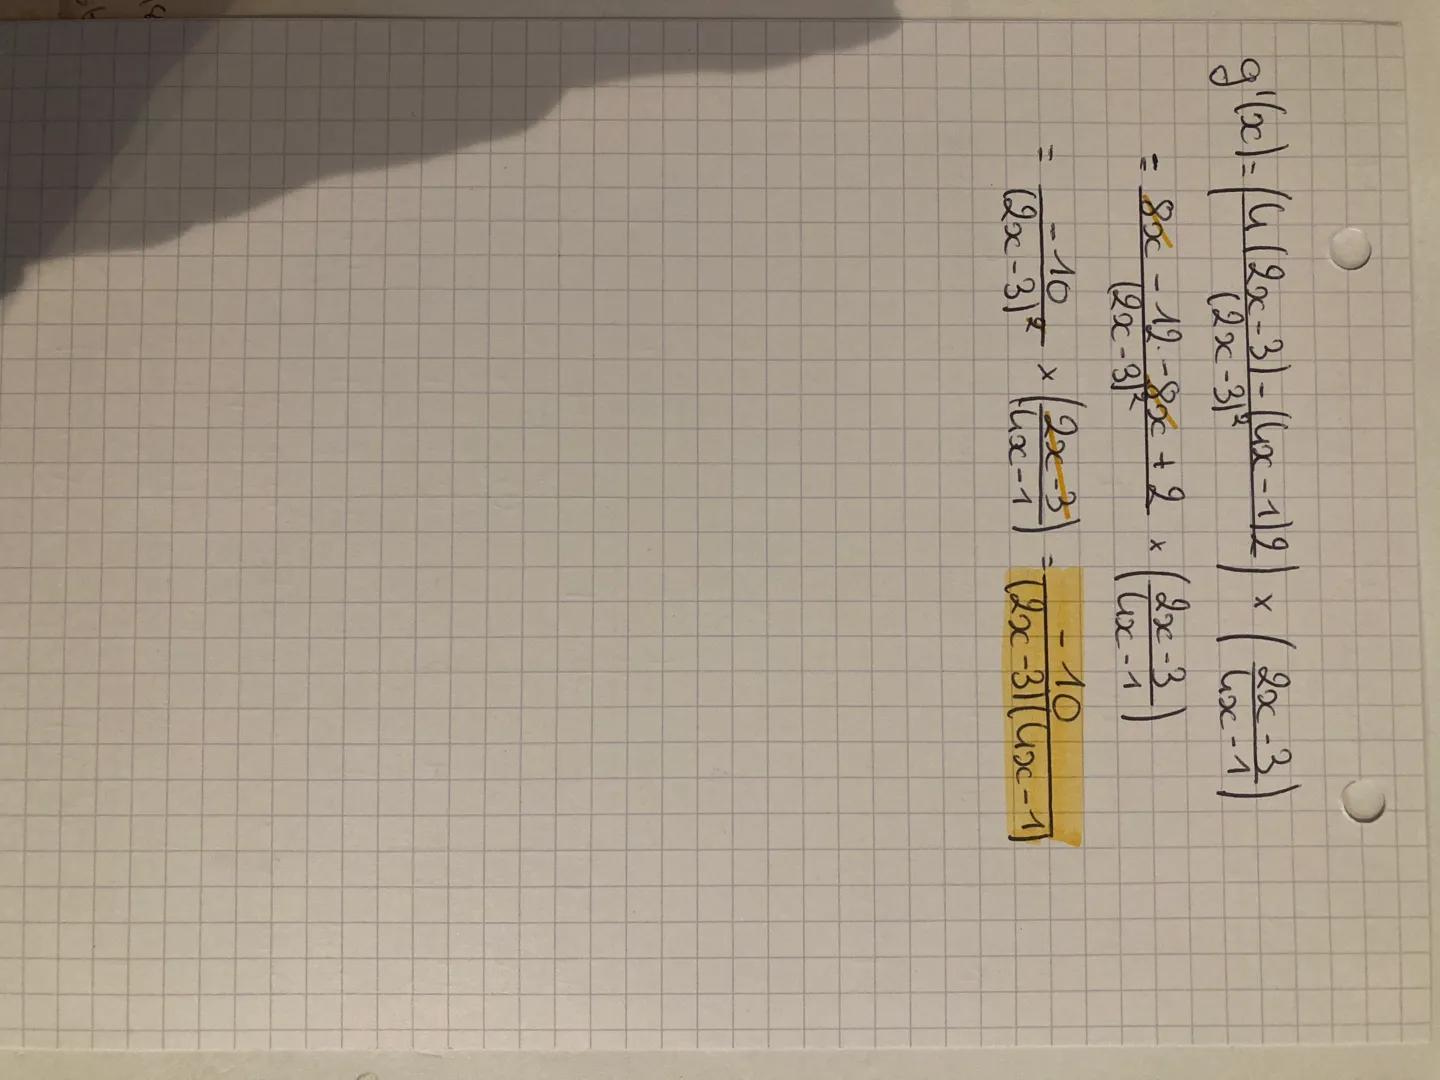 g'(x) = (4(2x-3)-(4x-1)2 / (2x-3)²) × (2x-3 / 4x-1)
= 8x - 12 - 8x + 2 / (2x-3)² × (2x-3 / 4x-1)
= -10 / (2x-3)² × (2x-3 / 4x-1) = -10 / (2x-3)(4x-1)